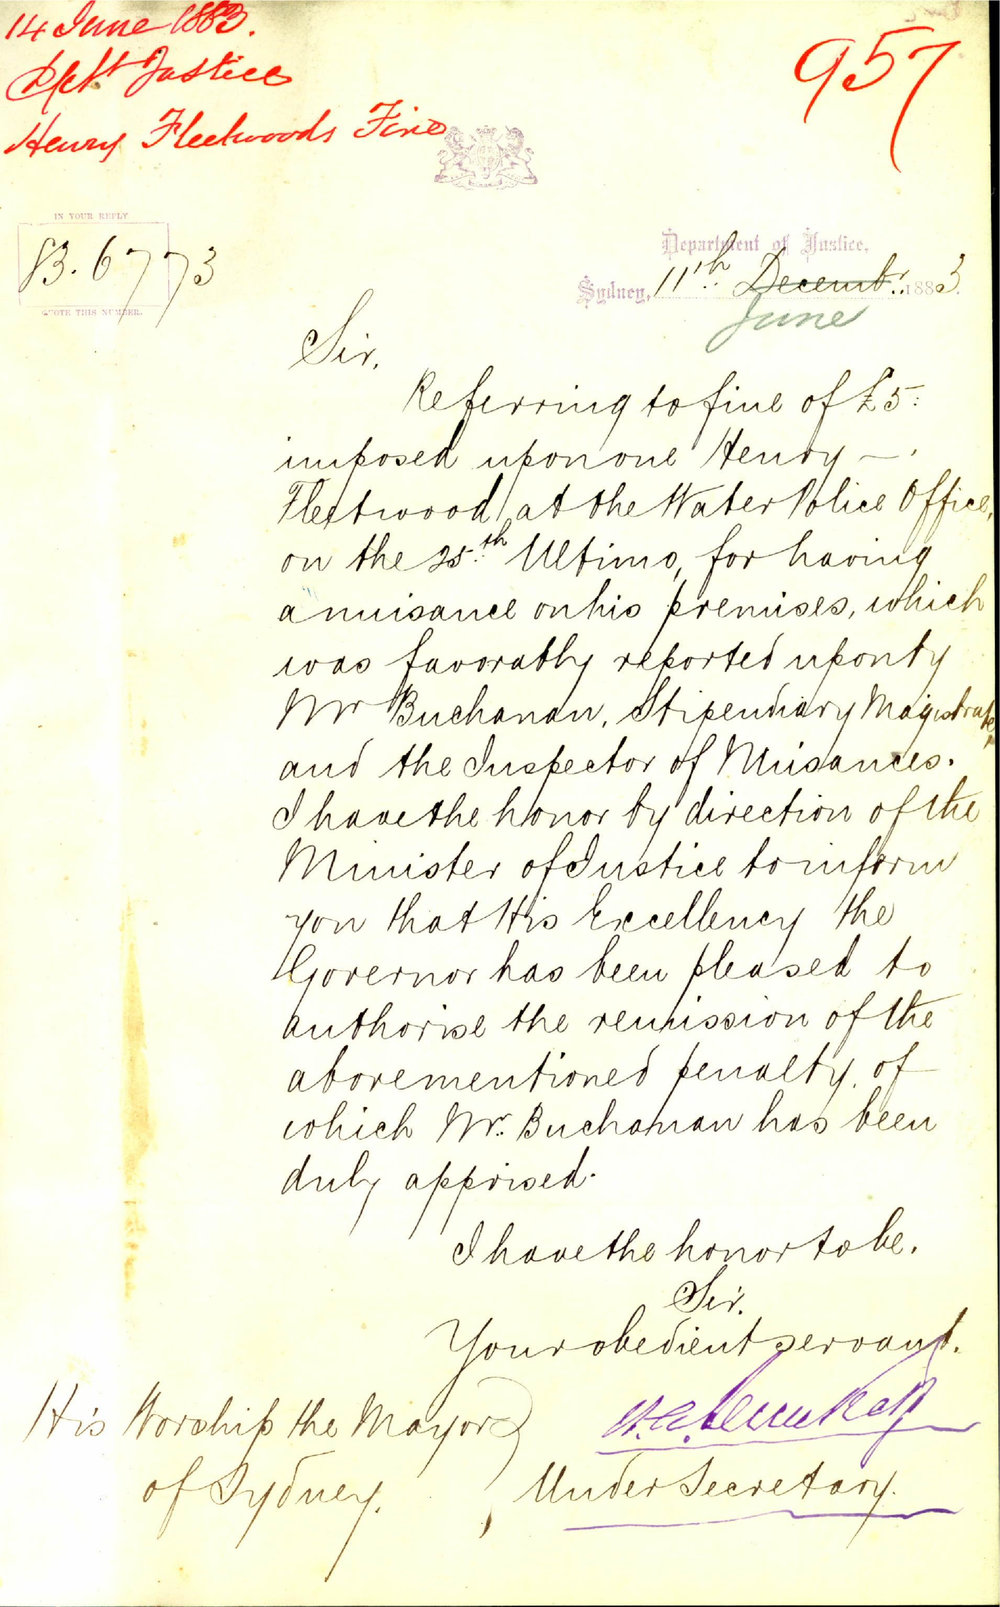 14 June 1883.
Dept Justice
Henry Fleetwoods Fine
957
IN YOUR REPLY
83.6773
QUOTE THIS NUMBER.
Department of Justice,
Sydney, 11th Decembr. 1883.
June
Sir,
Referring to fine of £5:
imposed upon one Henry —
Fleetwood, at the Water Police Office,
on the 25th Ultimo, for having
a nuisance on his premises, which
was favorably reported upon by
Mr Buchanan, Stipendiary Magistrate,
and the Inspector of Nuisances.
I have the honor by direction of the
Minister of Justice to inform
you that His Excellency the
Governor has been pleased to
authorise the remission of the
abovementioned penalty, of
which Mr. Buchanan has been
duly apprised.
I have the honor to be,
Sir,
Your obedient servant.
Under Secretary.
His Worship the Mayor
of Sydney.